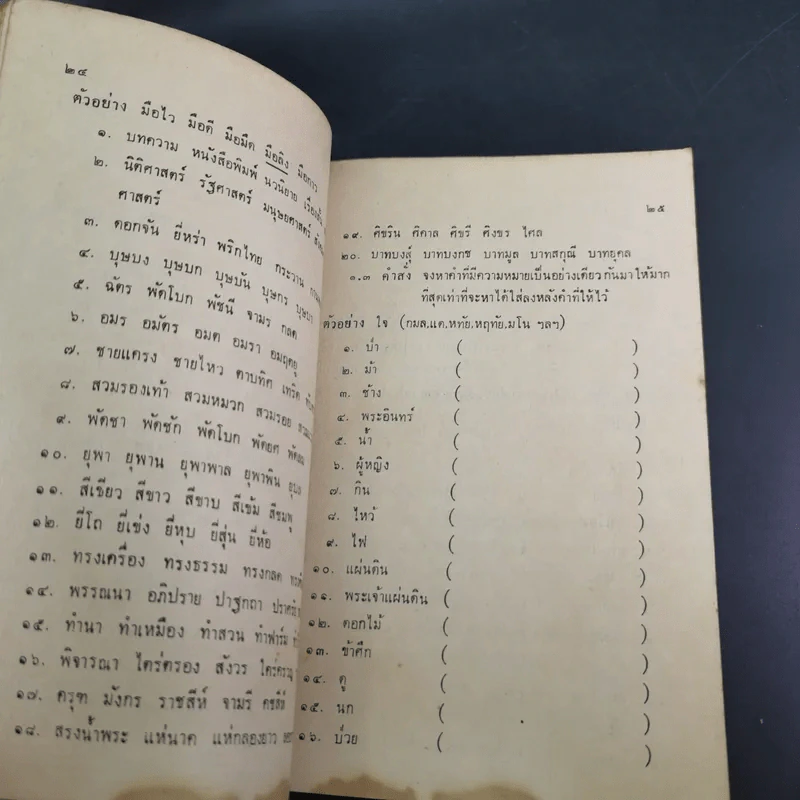 ๒๔
ตัวอย่าง มือไว มือดี มือมืด มือลิง มือกาว
๑. บทความ หนังสือพิมพ์ นวนิยาย
๒. นิติศาสตร์ รัฐศาสตร์ มนุษยศาสตร์
ศาสตร์
๓. ดอกจัน ยี่หร่า พริกไทย กระวาน
๔. บุษบง บุษบก บุษบัน บุษกร บุษบา
๕. ฉัตร พัดโบก พัชนี จามร กลด
๖. อมร อมัตร อมต อมรา อมฤตยู
๗. ชายแครง ชายไหว ตาบทิศ เทริด
๘. สวมรองเท้า สวมหมวก สวมรอย
๙. พัดชา พัดชัก พัดโบก พัดยศ
๑๐. ยุพา ยุพาน ยุพาพาล ยุพาพิน
๑๑. สีเขียว สีขาว สีขาบ สีเข้ม สีชมพู
๑๒. ยี่โถ ยี่เข่ง ยี่หุบ ยี่สุ่น ยี่ห้อ
๑๓. ทรงเครื่อง ทรงธรรม ทรงกลด
๑๔. พรรณนา อภิปราย ปาฐกถา
๑๕. ทำนา ทำเหมือง ทำสวน ทำฟาร์ม
๑๖. พิจารณา ไตร่ตรอง สังวร
๑๗. ครุฑ มังกร ราชสีห์ จามรี คชสีห์
๑๘. สรงน้ำพระ แห่นาค แห่กลองยาว
๒๕
๑๙. ศิขริน ศิคาล ศิขรี ศิงขร ไศล
๒๐. บาทบงสุ์ บาทบงกช บาทมูล บาทสกุณี บาทยุคล
๑.๓ คำสั่ง จงหาคำที่มีความหมายเป็นอย่างเดียวกันมาให้มาก
ที่สุดเท่าที่จะหาได้ใส่ลงหลังคำที่ให้ไว้
ตัวอย่าง ใจ (กมล,แด,หทัย,หฤทัย,มโน ฯลฯ)
๑. ป่า ( )
๒. ม้า ( )
๓. ช้าง ( )
๔. พระอินทร์ ( )
๕. น้ำ ( )
๖. ผู้หญิง ( )
๗. กิน ( )
๘. ไหว้ ( )
๙. ไฟ ( )
๑๐. แผ่นดิน ( )
๑๑. พระเจ้าแผ่นดิน ( )
๑๒. ดอกไม้ ( )
๑๓. ข้าศึก ( )
๑๔. ดู ( )
๑๕. นก ( )
๑๖. ป่วย ( )